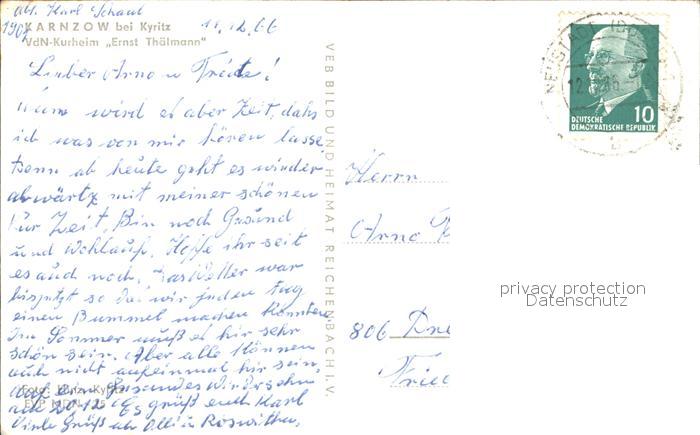 Abs. Karl Schaub
190
KARNZOW bei Kyritz
VdN-Kurheim „Ernst Thälmann"
11.12.66
Lieber Arno u Friedel!
Nun wird es aber Zeit, dahs
ich was von mir hören lasse,
denn ab heute geht es wieder
abwärtz mit meiner schönen
Kur Zeit. Bin noch Gesund
und Wohlauf. Hoffe ihr seit
es auch noch. Das Wetter war
bisjetzt so das wir jeden Tag
einen Bummel machen konnten.
Im Sommer muß es hir sehr
schön sein. Aber alle können
auch nicht aufeinmal hir sein,
auf ein Gesundes Widersehn
am 20.12. Es grüßt euch Karl
Viele Grüß an Olli u Roswitha.
Foto: Kyritz
VEB BILD UND HEIMAT REICHENBACH I. V.
NEUSTADT (DOSSE)
12.
66
b
10
DEUTSCHE
DEMOKRATISCHE REPUBLIK
Herrn
Arno
806 Dre
Fried
privacy protection
Datenschutz